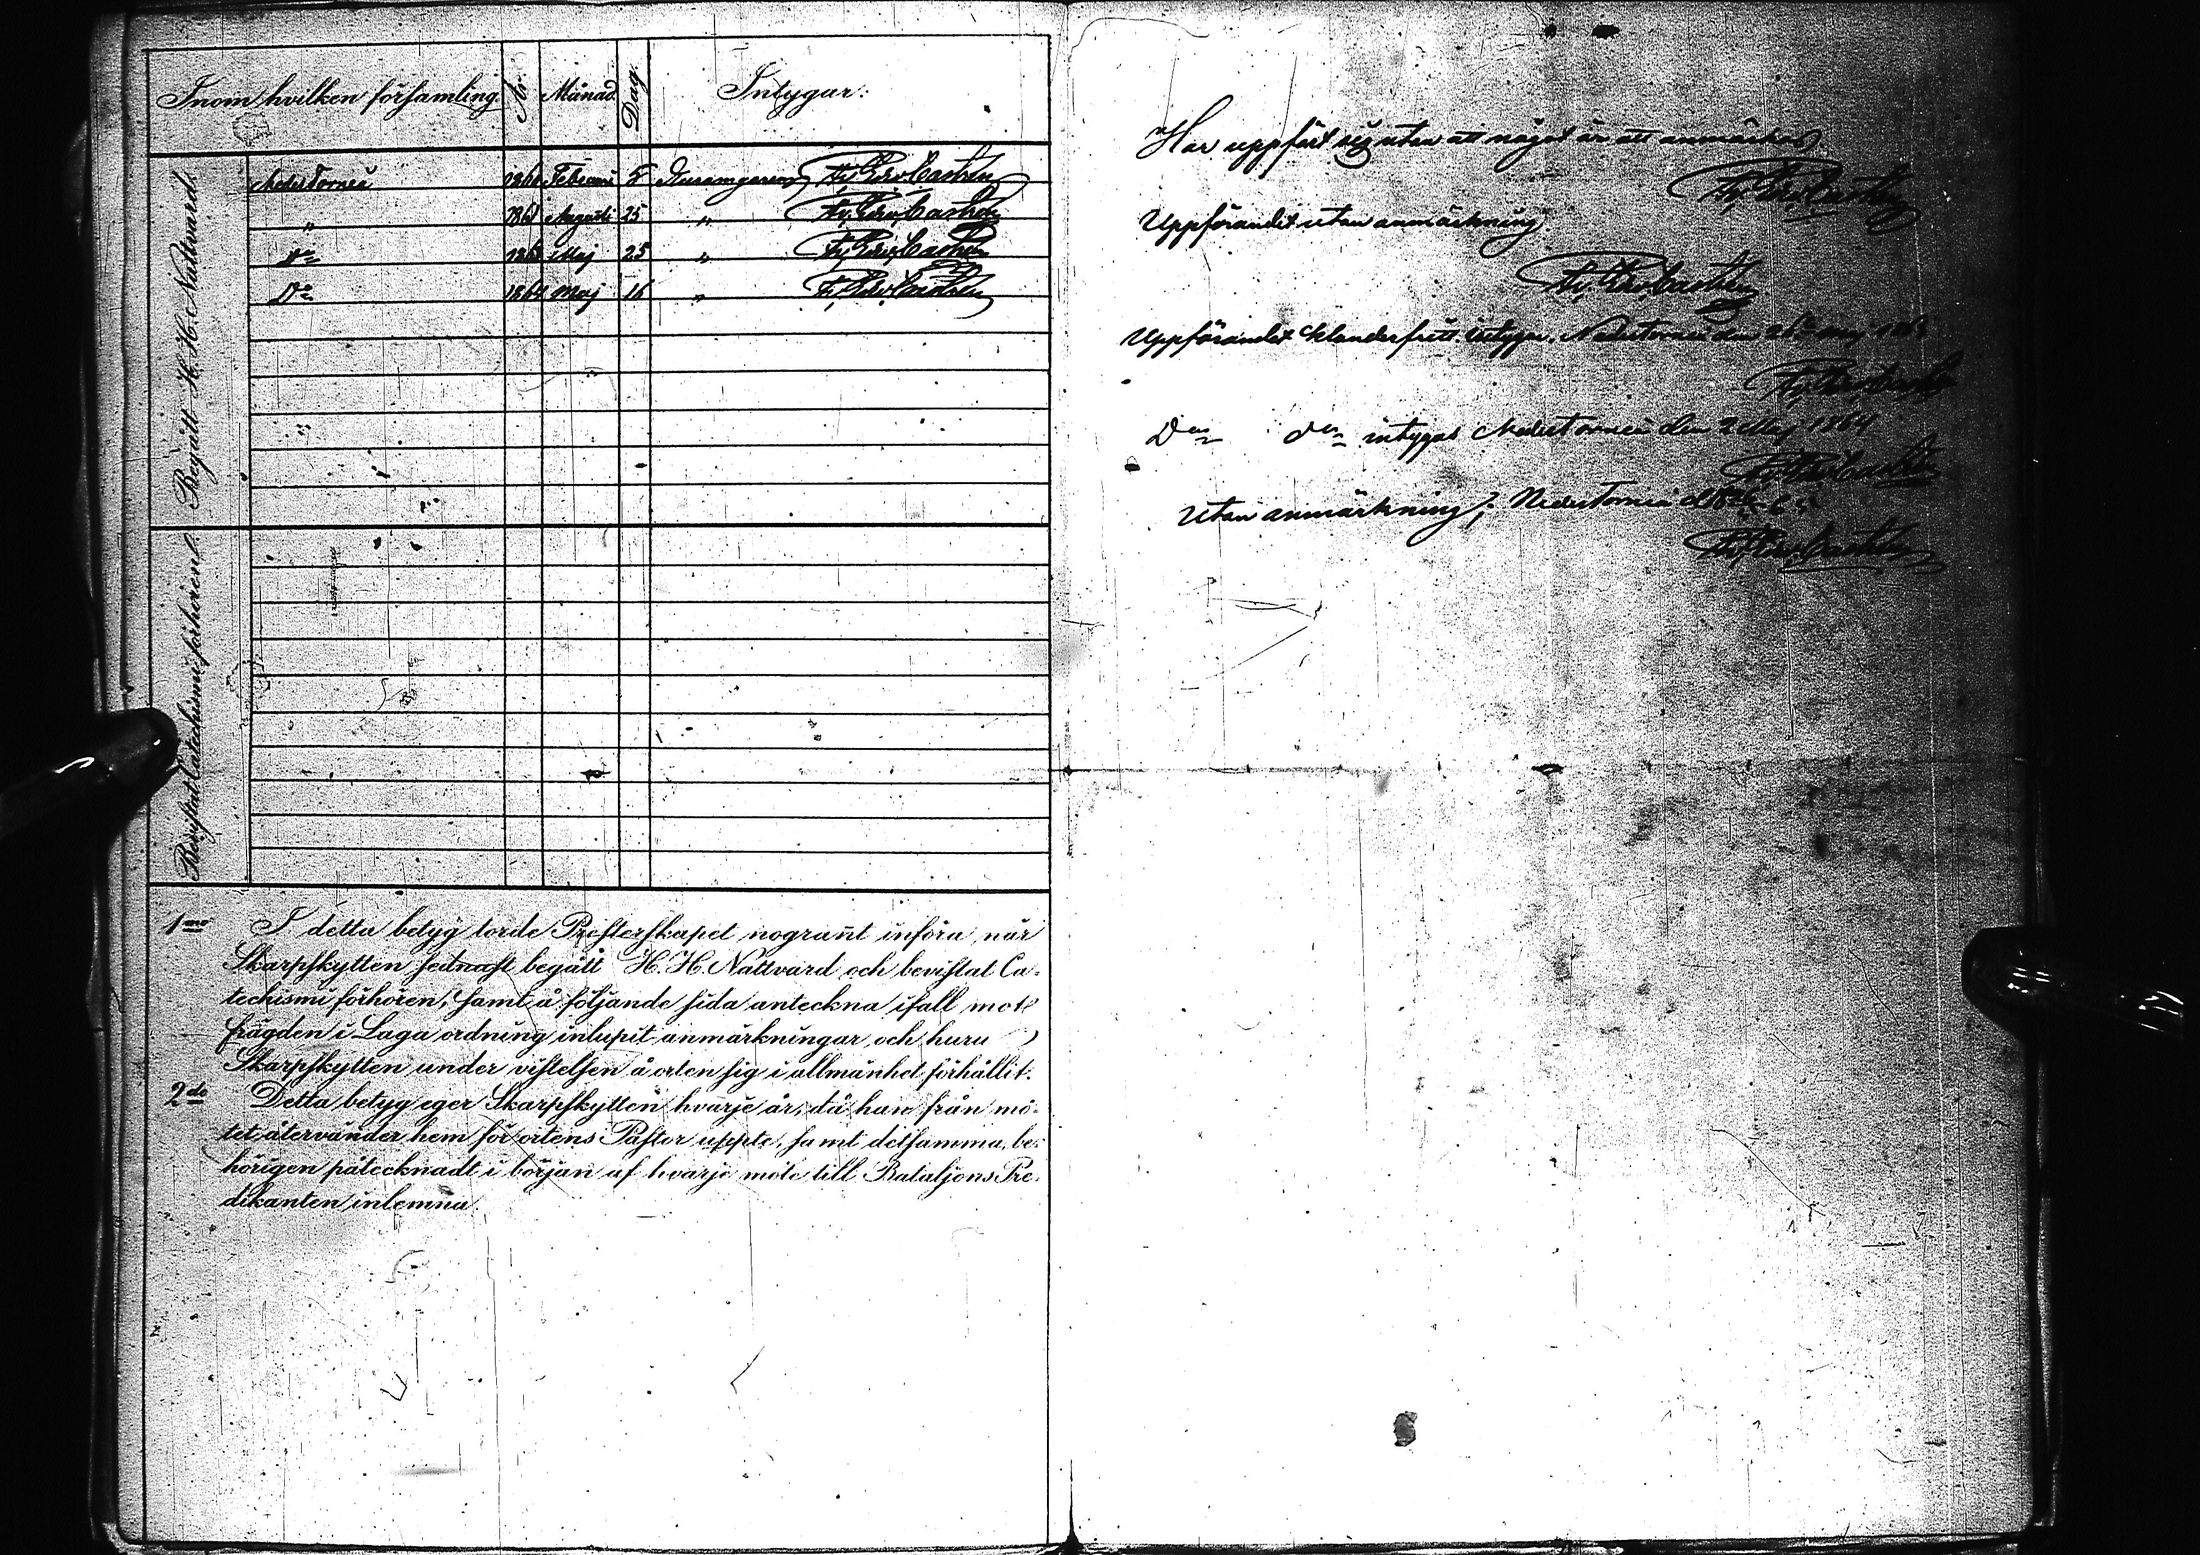 Inom hvilken församling. År. Månad. Dag. Intygar:
Begått H. H. Nattvard.
Neder Torneå 1861 Februari 8
„ 1861 Augusti 25 „
Do 186 Maj 25 „
Do 1864 Maj 16 „
Bevistat Catechismi förhören.
1mo I detta betyg torde Presterskapet nogrant införa när
Skarpskytten sednast begått H. H. Nattvard och bevistat Ca-
techismi förhören, samt å följande sida anteckna ifall mot
frägden i Laga ordning inlupit anmärkningar, och huru
Skarpskytten under vistelsen å orten sig i allmänhet förhållit.
2do Detta betyg eger Skarpskytten hvarje år, då han från mö-
tet återvänder hem för ortens Pastor uppte, samt detsamma, be-
hörigen påtecknadt i början af hvarje möte till Bataljons Pre-
dikanten inlemna.
Har uppfört sig utan att något är att anmärka
Uppförandet utan anmärkning
Uppförandet klanderfritt intygar. Neder Torneå den 26 Maj 186
Do do intygas Neder Torneå den 2 Maj 1864
Utan anmärkning; Neder Torneå d